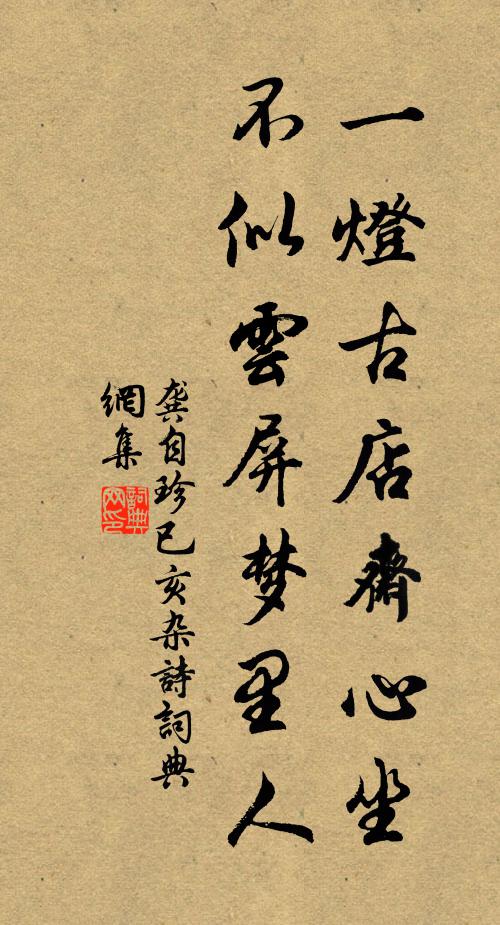 一燈古店齋心坐
不似雲屏梦里人
龔自珍已亥杂詩詞典
網集
詞典
网印